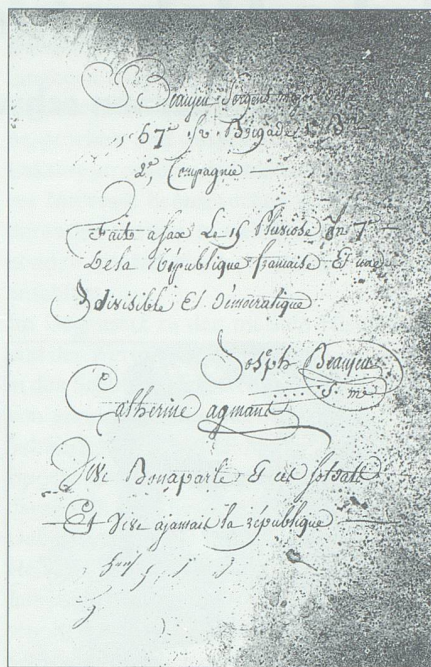 Beaujeu Sergent major
67e 1/2 Brigade 1er Bon
2e, Compagnie
Fait a sax Le 15 Pluviose An 7
De la République francaise Et une
Indivisible Et Démocratique
Joseph Beaujeu
S. mor
Catherine agmant
Vive Bonaparte Et cet
Et Vive ajamait la république